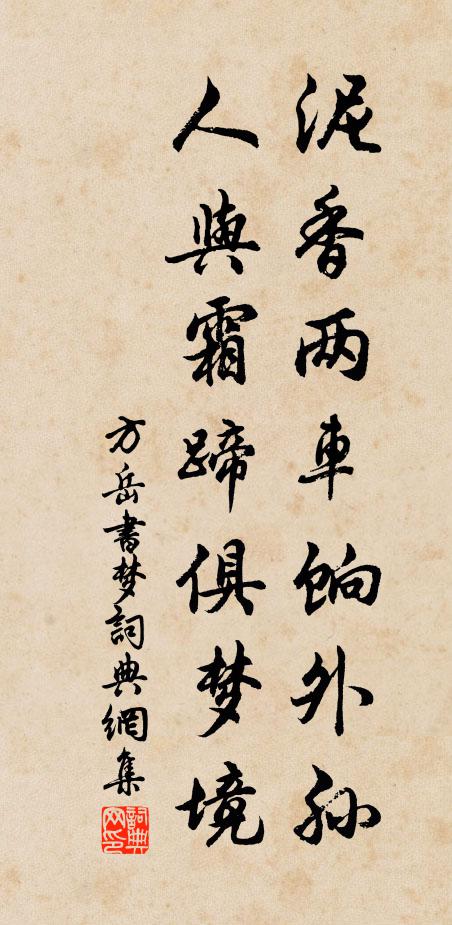 泥香两車餉外孙
人與霜蹄俱梦境
方岳書梦詞典網集
詞典网印